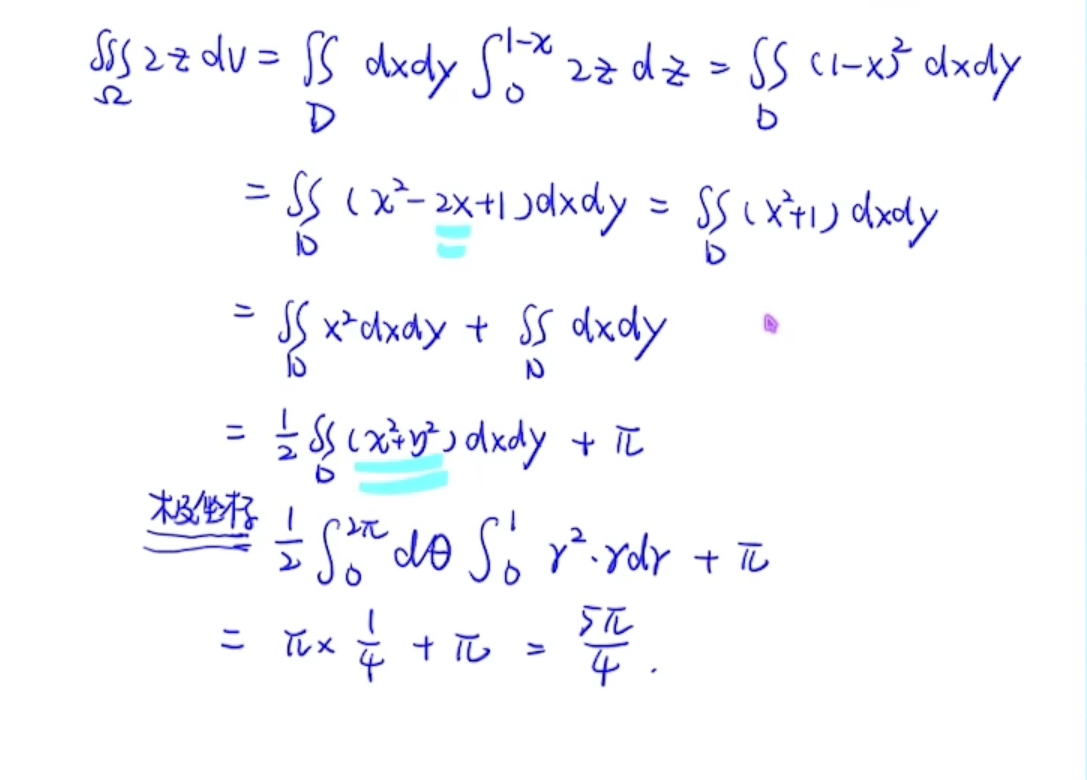 ∭_Ω 2z dv = ∬_D dxdy ∫_0^{1-x} 2z dz = ∬_D (1-x)² dxdy
= ∬_D (x²-2x+1)dxdy = ∬_D (x²+1) dxdy
= ∬_D x²dxdy + ∬_D dxdy
= 1/2 ∬_D (x²+y²)dxdy + π
极坐标 1/2 ∫_0^{2π} dθ ∫_0^1 r²·rdr + π
= π× 1/4 + π = 5π/4 .